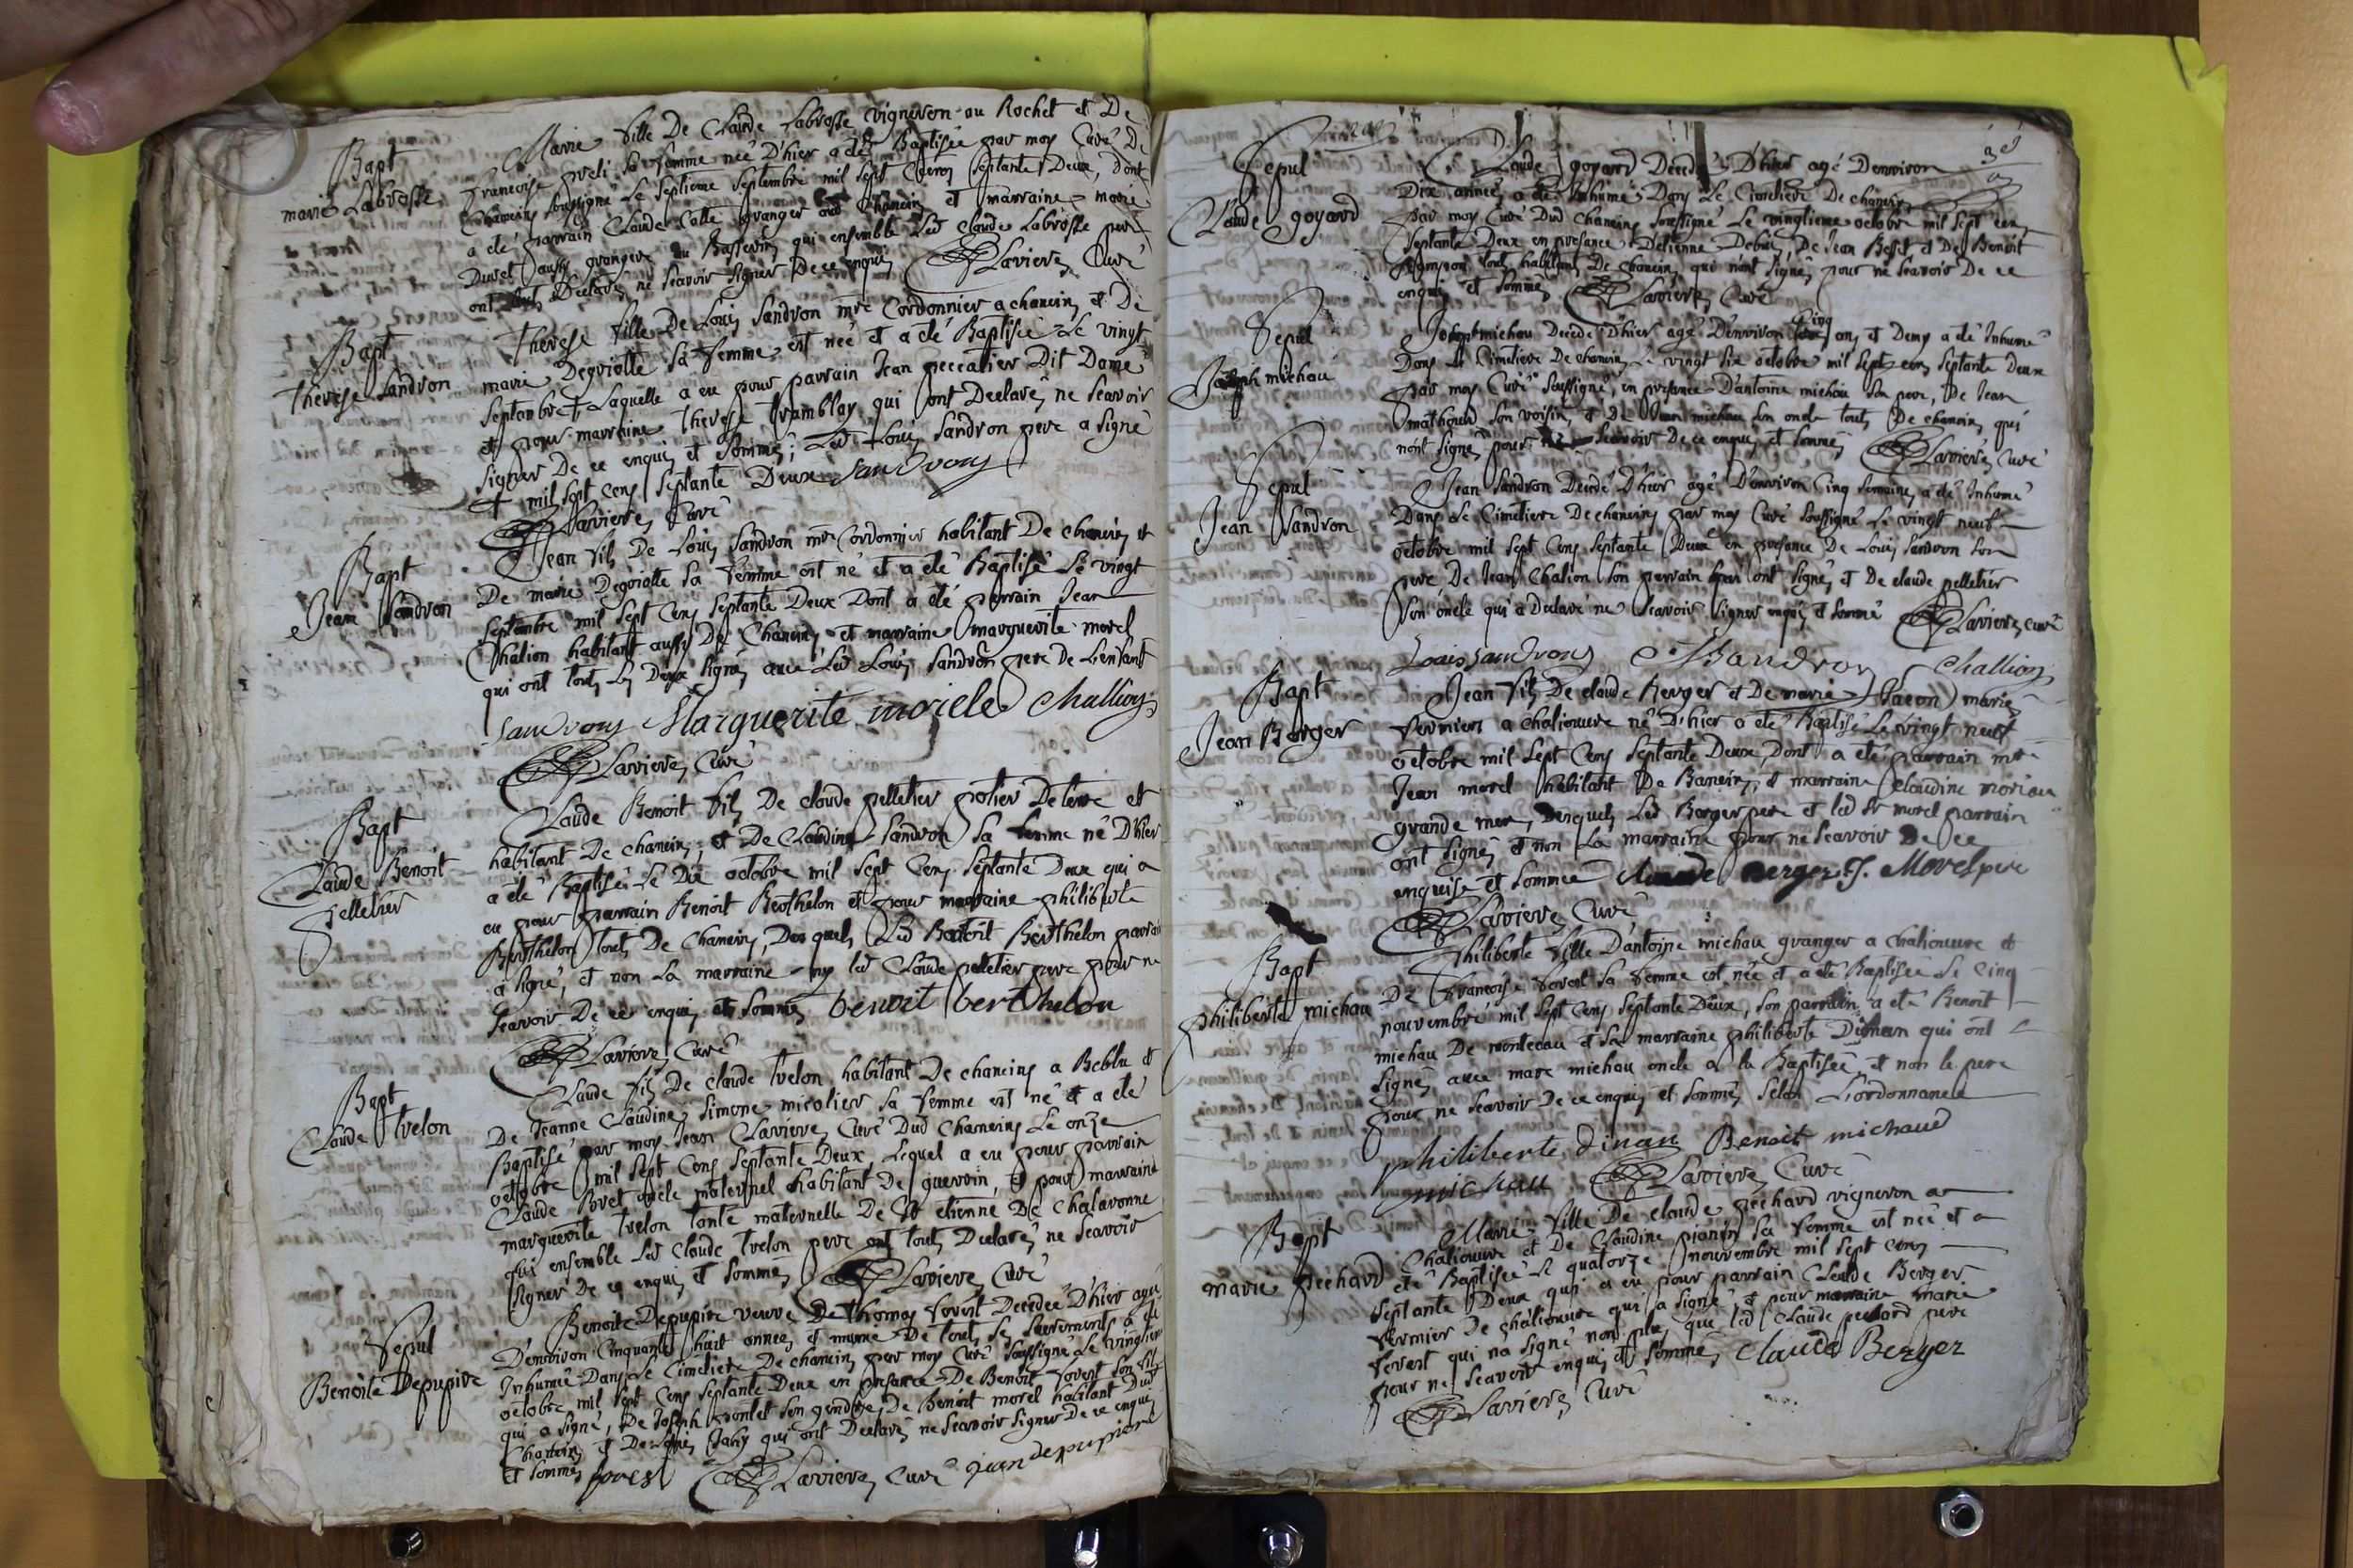 Bapt
marie Labrosse
Marie fille De Claude Labrosse vigneron au Rochet et De
francoise preli sa femme neé D'hier a eté Baptisée par moy Curé De
Chanein soussigné Le septieme septembre mil sept Cens septante Deux, Dont
a eté parrain Claude Catte granger aud Chanein et marraine marie
Duvet aussy grangere au Basserin qui ensemble Led Claude Labrosse pere
ont tous Declarés ne scavoir signer De ce enquis Clavieres Curé
Bapt
Therese Sandron
Therese fille De Louis Sandron mtre Cordonnier a chanein et De
marie Degriotte sa femme est née et a eté Baptisée Le vingt
septembre + Laquelle a eu pour parrain Jean peccatier Dit Dame
et pour marraine Therese Tramblay qui ont Declarés ne scavoir
signer De ce enquis et sommés; Led Louis Sandron pere a signé
+ mil sept Cens septante Deux Sandrons
Clavieres Curé
Bapt
Jean Sandron
Jean fils De Louis Sandron mtre Cordonnier habitant De chanein et
De marie Degriotte sa femme est né et a eté Baptisé Le vingt
septembre mil sept Cens septante Deux Dont a eté parrain Jean
Chalion habitant aussy De Chanein et marraine marguerite morel
qui ont tous Les Deux signés avec Led Louis Sandron pere De L'enfant
Sandrons Marguerite moriele Challion
Clavieres Curé
Bapt
Claude Benoit
pelletier
Claude Benoit fils De claude pelletier potier De terre et
habitant De chanein, et De Claudine Sandron sa femme né D'hier
a eté Baptisé Le Dix octobre mil sept Cens septante Deux qui a
eu pour parrain Benoit Berthelon et pour marraine philiberte
Berthelon tous De Chanein, Des quels Led Benoit Berthelon parrain
a signé, et non La marraine ny led Claude pelletier pere pour ne
scavoir De ce enquis et sommés benoit berthelon
Clavieres Curé
Bapt
Claude Tvelon
Claude fils De claude Tvelon habitant De chanein a Beblu et
De Jeanne Claudine Simone micolier sa femme est né et a eté
Baptisé par moy Jean Claviere, Curé Dud Chaneins Le onze
octobre mil sept Cens septante Deux, Lequel a eu pour parrain
Claude Bret oncle maternel habitant De guerrin, et pour marraine
marguerite Tvelon tante maternelle De St etienne De Chalaronne
qui ensemble Led Claude Tvelon pere ont tous Declarés ne scavoir
signer De ce enquis et sommés Clavieres Curé
Sepul
Benoite Depupire
Benoite Depupire veuve De thomas fovest Decedée D'hier agée
D'environ Cinquante huit années et munie De tous ses sacrements a eté
Inhumée Dans Le Cimetiere De chanein par moy Curé soussigné Le vingtieme
octobre mil sept Cens septante Deux en presance De Benoit fovest son fils
qui a signé, De Joseph pontet son gendre, De Benoit morel habitant Dud
Chanein et De Louis Jahy qui ont Declarés ne scavoir signer De ce enquis
et sommés forest Clavieres Curé jean depupier
Sepul
Claude goyard
Claude goyard Decedé D'hier agé Denviron
Dix années a eté Inhumé Dans Le Cimetiere De chanein
par moy Curé Dud Chaneins soussigné Le vingtieme octobre mil sept cens
septante Deux en presance D'etienne Debiel, De Jean Besset et De Benoit
tous habitans De Chanein qui n'ont signés pour ne scavoir De ce
enquis et sommés Clavieres Curé
Sepul
Joseph michau
Joseph michau Decedé D'hier agé D'environ cinq ans et Demy a eté Inhumé
Dans Le Cimetiere De chanein Le vingt six octobre mil sept cens septante Deux
par moy Curé soussigné, en presance D'antoine michau son pere, De Jean
mathoud son voisin, et De Jean michau son oncle tous De chanein qui
n'ont signés pour ne scavoir De ce enquis et sommés Clavieres Curé
Sepul
Jean Sandron
Jean Sandron Decedé D'hier agé D'environ Cinq semaines a eté Inhumé
Dans Le Cimetiere De chaneins par moy Curé soussigné Le vingt neuf
octobre mil sept Cens septante Deux en presance De Louis Sandron son
pere De Jean Chalion son parrain qui ont signés et De claude pelletier
son oncle qui a Declaré ne scavoir signer enquis et sommé Clavieres curé
Louis Sandrons Sandron Challion
Bapt
Jean Berger
Jean fils De claude Berger et De marie faeon mariés
fermiers a chaliouvre né D'hier a eté Baptisé Le vingt neuf
octobre mil sept Cens septante Deux, Dont a eté parrain mre
Jean morel habitant De Baneins, et marraine Claudine moriau
grande mere, Desquels Led Berger pere et led Sr morel parrain
ont signés et non La marraine pour ne scavoir De ce
enquise et sommée claude berger J. Morel pere
Clavieres Curé
Bapt
philiberte michau
Philiberte fille D'antoine michau granger a chaliouvre et
De francoise fovest sa femme est née et a eté Baptisée Le cinq
nouvembre mil sept Cens septante Deux, son parrain a eté Benoit
michau De montceau et sa marraine philiberte Dignan qui ont
signés avec marc michau oncle a La Baptisée, et non le pere
pour ne scavoir De ce enquis et sommés selon L'ordonnance
philiberte dinan Benoit michaud
michau Clavieres Curé
Bapt
marie péchard
Marie fille De claude péchard vigneron a
Chaliouvre et De Claudine pianin sa femme est née et a
eté Baptisée Le quatorze nouvembre mil sept cens
septante Deux qui a eu pour parrain Claude Berger
fermier De chaliouvre qui a signé et pour marraine marie
fovest qui na signé non plus que led Claude pechard pere
pour ne scavoir enquis et sommés Claude Berger
Clavieres Curé